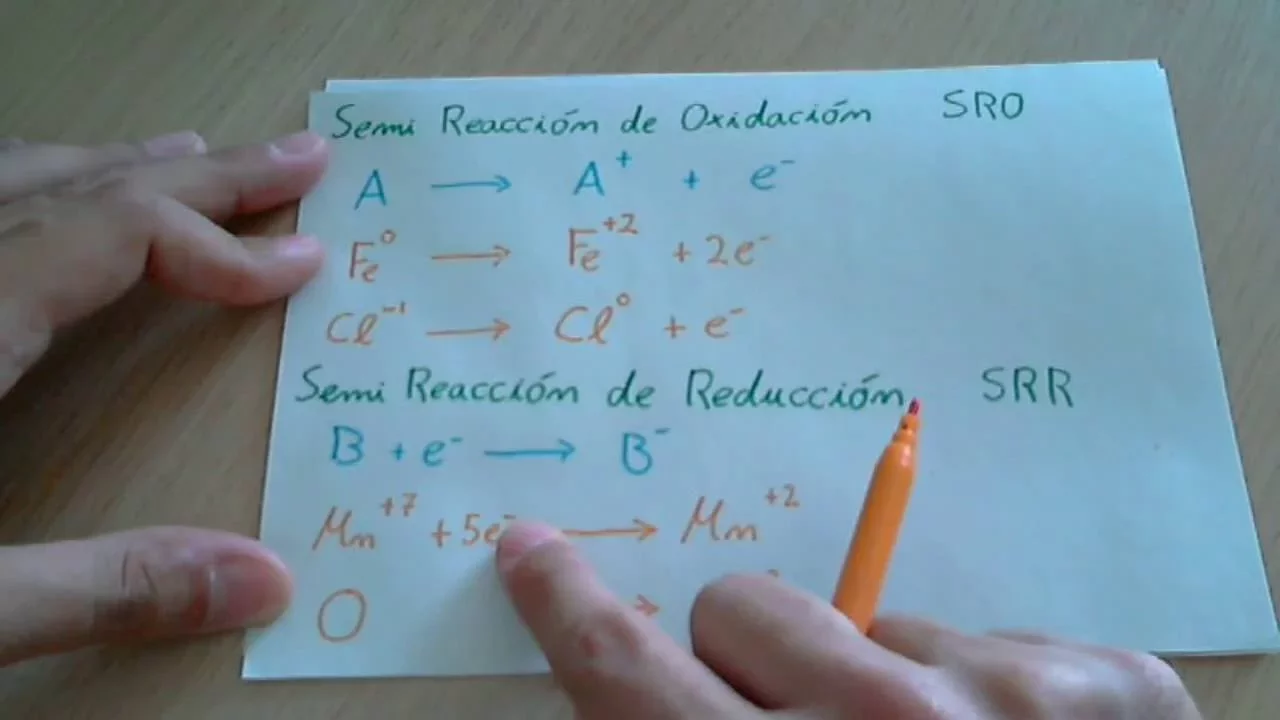 Semi Reacción de Oxidación SRO
A → A⁺ + e⁻
Fe⁰ → Fe⁺² + 2e⁻
Cl⁻¹ → Cl⁰ + e⁻
Semi Reacción de Reducción SRR
B + e⁻ → B⁻
Mn⁺⁷ + 5e⁻ → Mn⁺²
O →